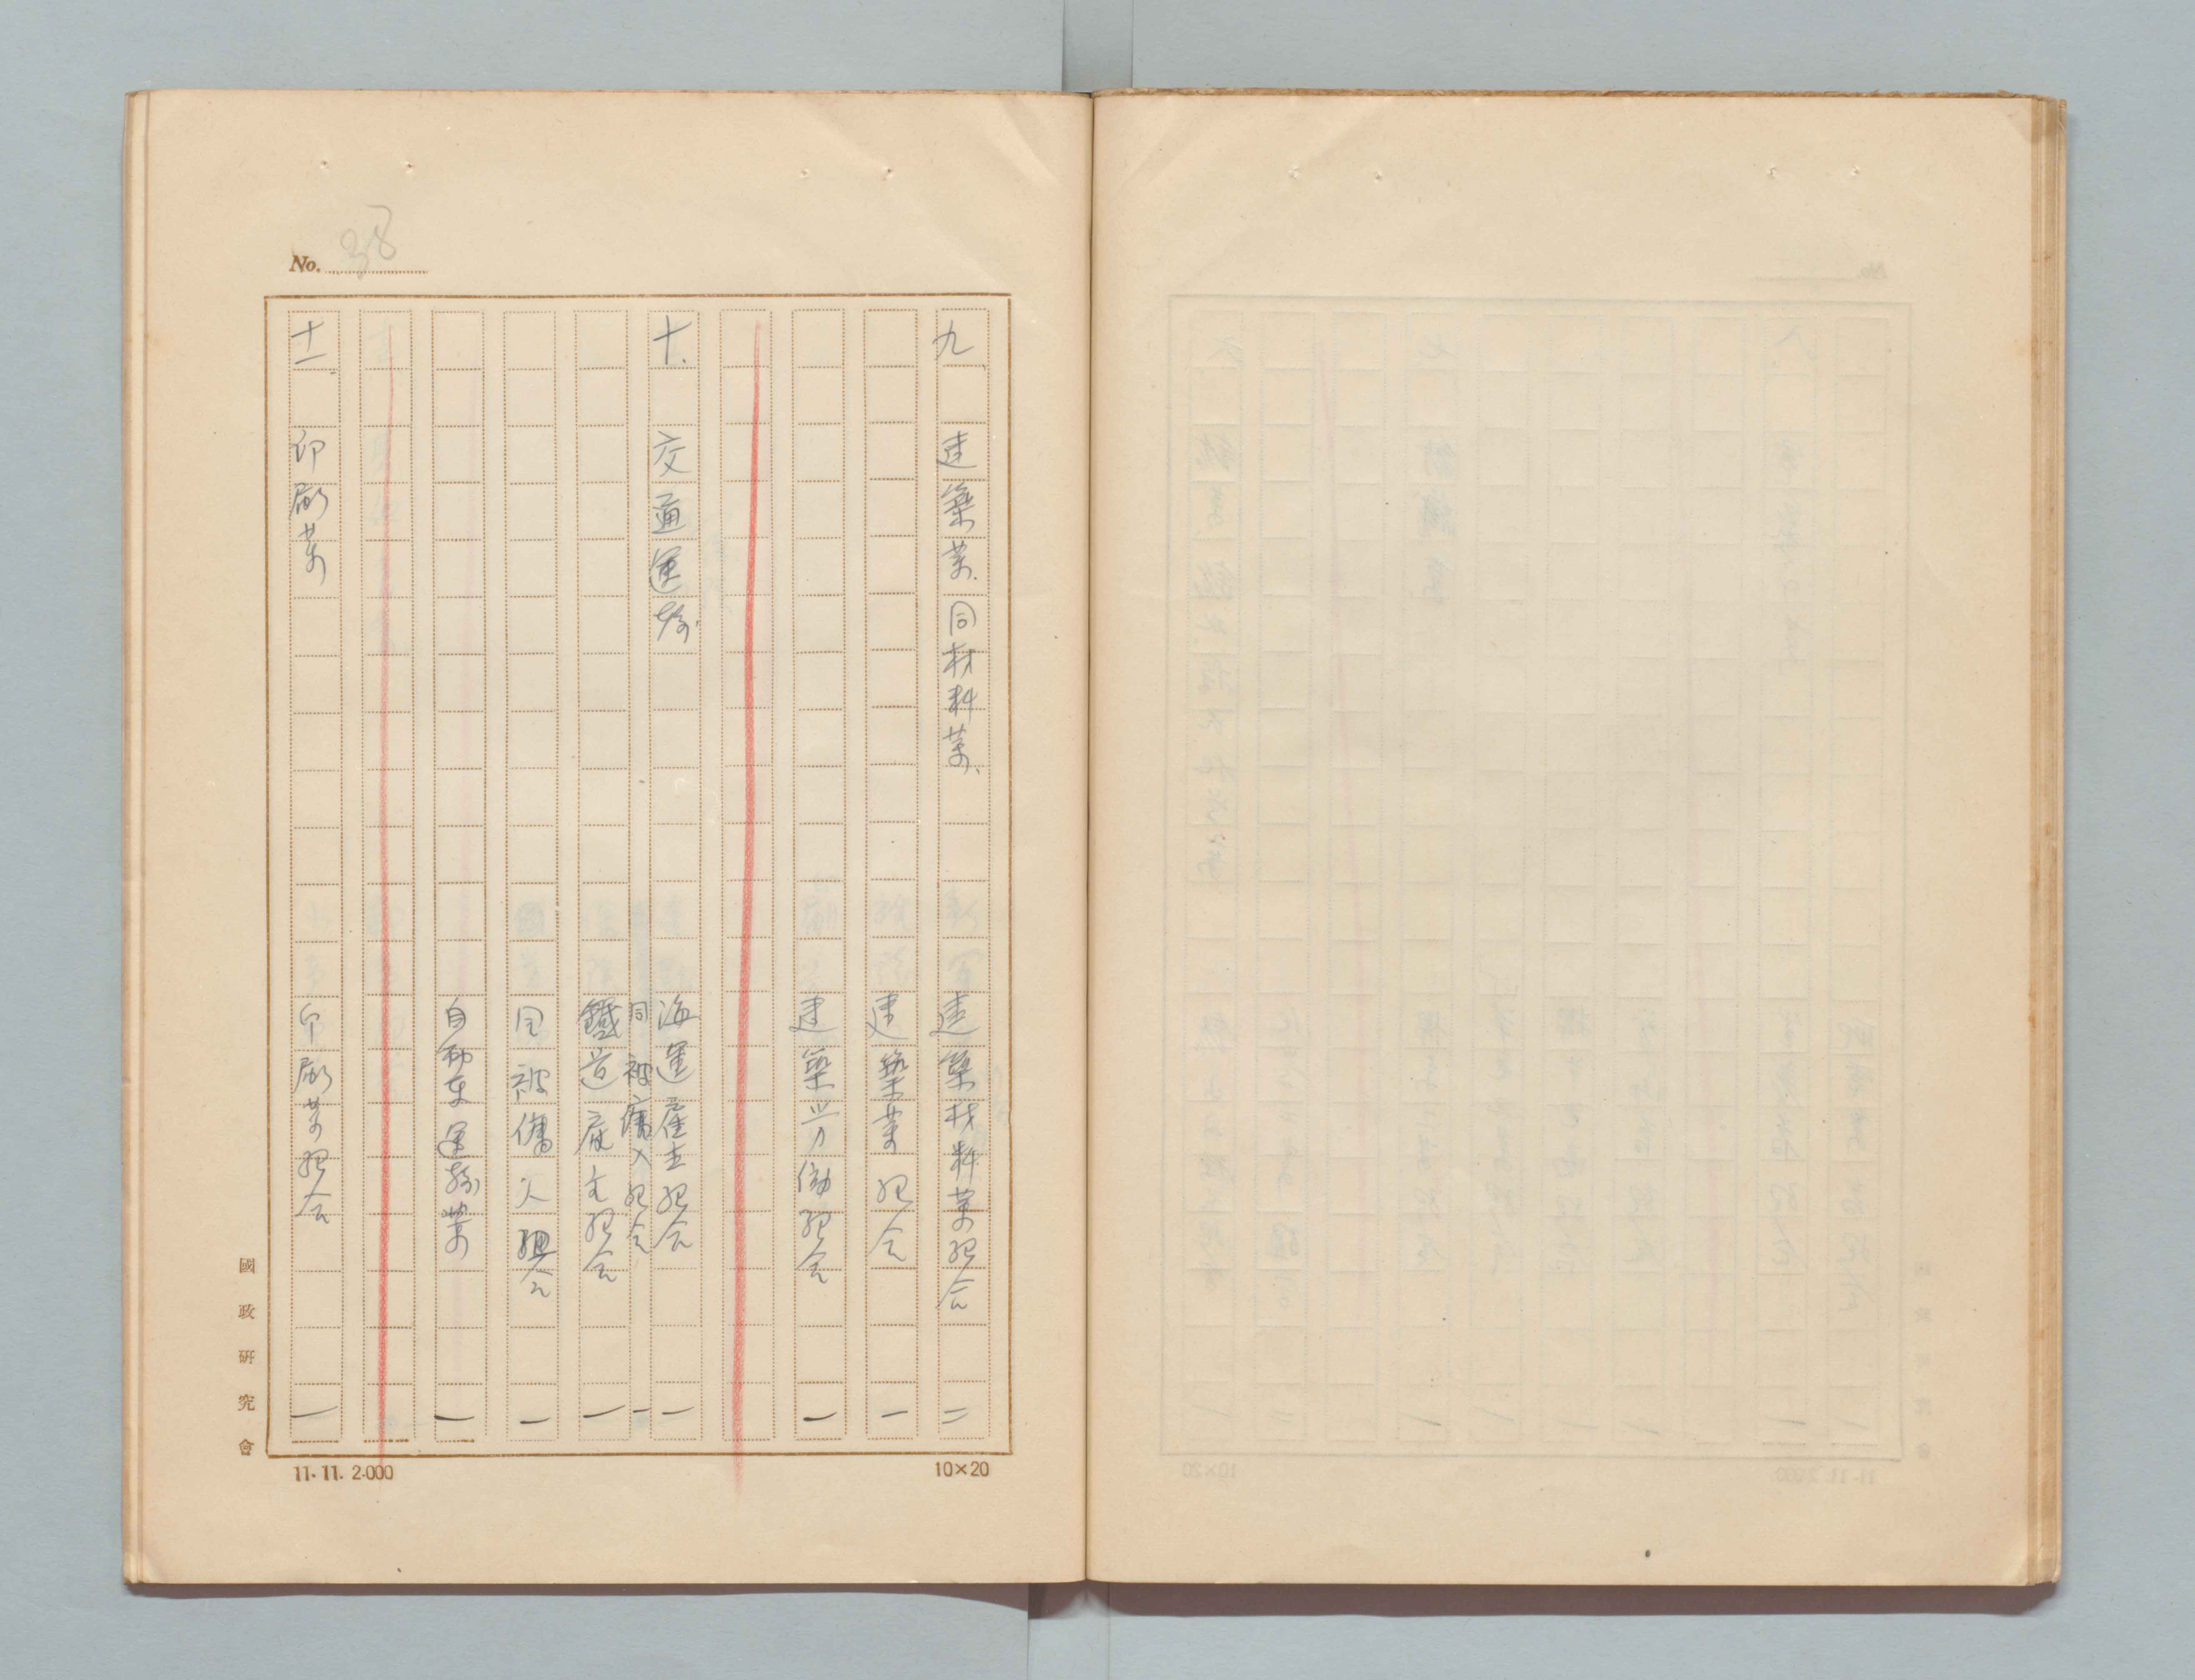 No. 38
九 建築業、同材料業、 建築材料業組合 二
建築業組合 一
建築労働組合 一
十、 交通運輸 海運雇主組合 一
同被傭人組合 一
鐵道雇主組合 一
同被傭人組合 一
自動車運輸業 一
十一 印刷業 印刷業組合 一
國政研究會
11.11.2.000
10×20